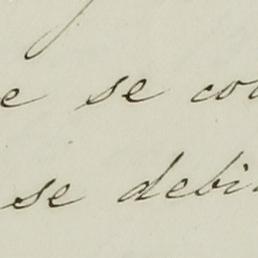 e se co
se debi